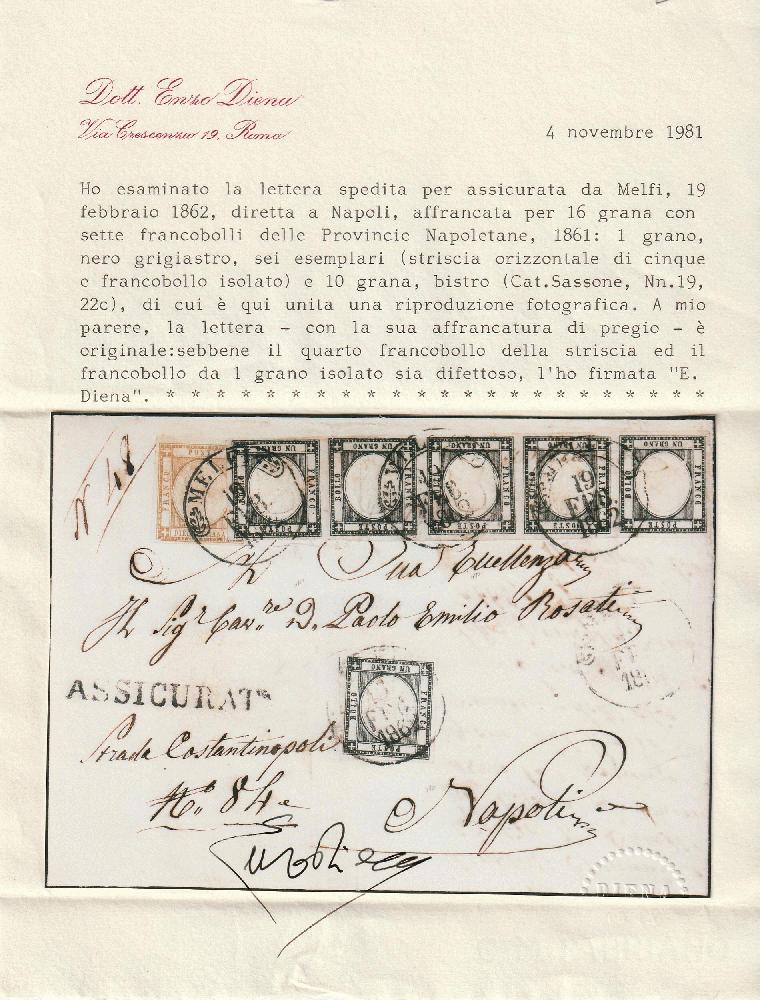 Dott. Enzo Diena
Via Crescenzio 19. Roma
4 novembre 1981
Ho esaminato la lettera spedita per assicurata da Melfi, 19
febbraio 1862, diretta a Napoli, affrancata per 16 grana con
sette francobolli delle Provincie Napoletane, 1861: 1 grano,
nero grigiastro, sei esemplari (striscia orizzontale di cinque
e francobollo isolato) e 10 grana, bistro (Cat.Sassone, Nn.19,
22c), di cui è qui unita una riproduzione fotografica. A mio
parere, la lettera - con la sua affrancatura di pregio - è
originale:sebbene il quarto francobollo della striscia ed il
francobollo da 1 grano isolato sia difettoso, l'ho firmata "E.
Diena". * * * * * * * * * * * * * * * * * * * * * *
N 48
MELFI
19
FEB
1862
UN GRANO FRANCO POSTE BOLLO
A Sua Eccellenza
Il Sigr Cavre D. Paolo Emilio Rosati
ASSICURATA
UN GRANO FRANCO POSTE BOLLO
Strada Costantinopoli
No. 84
Napoli
Enzo Diena
DIENA